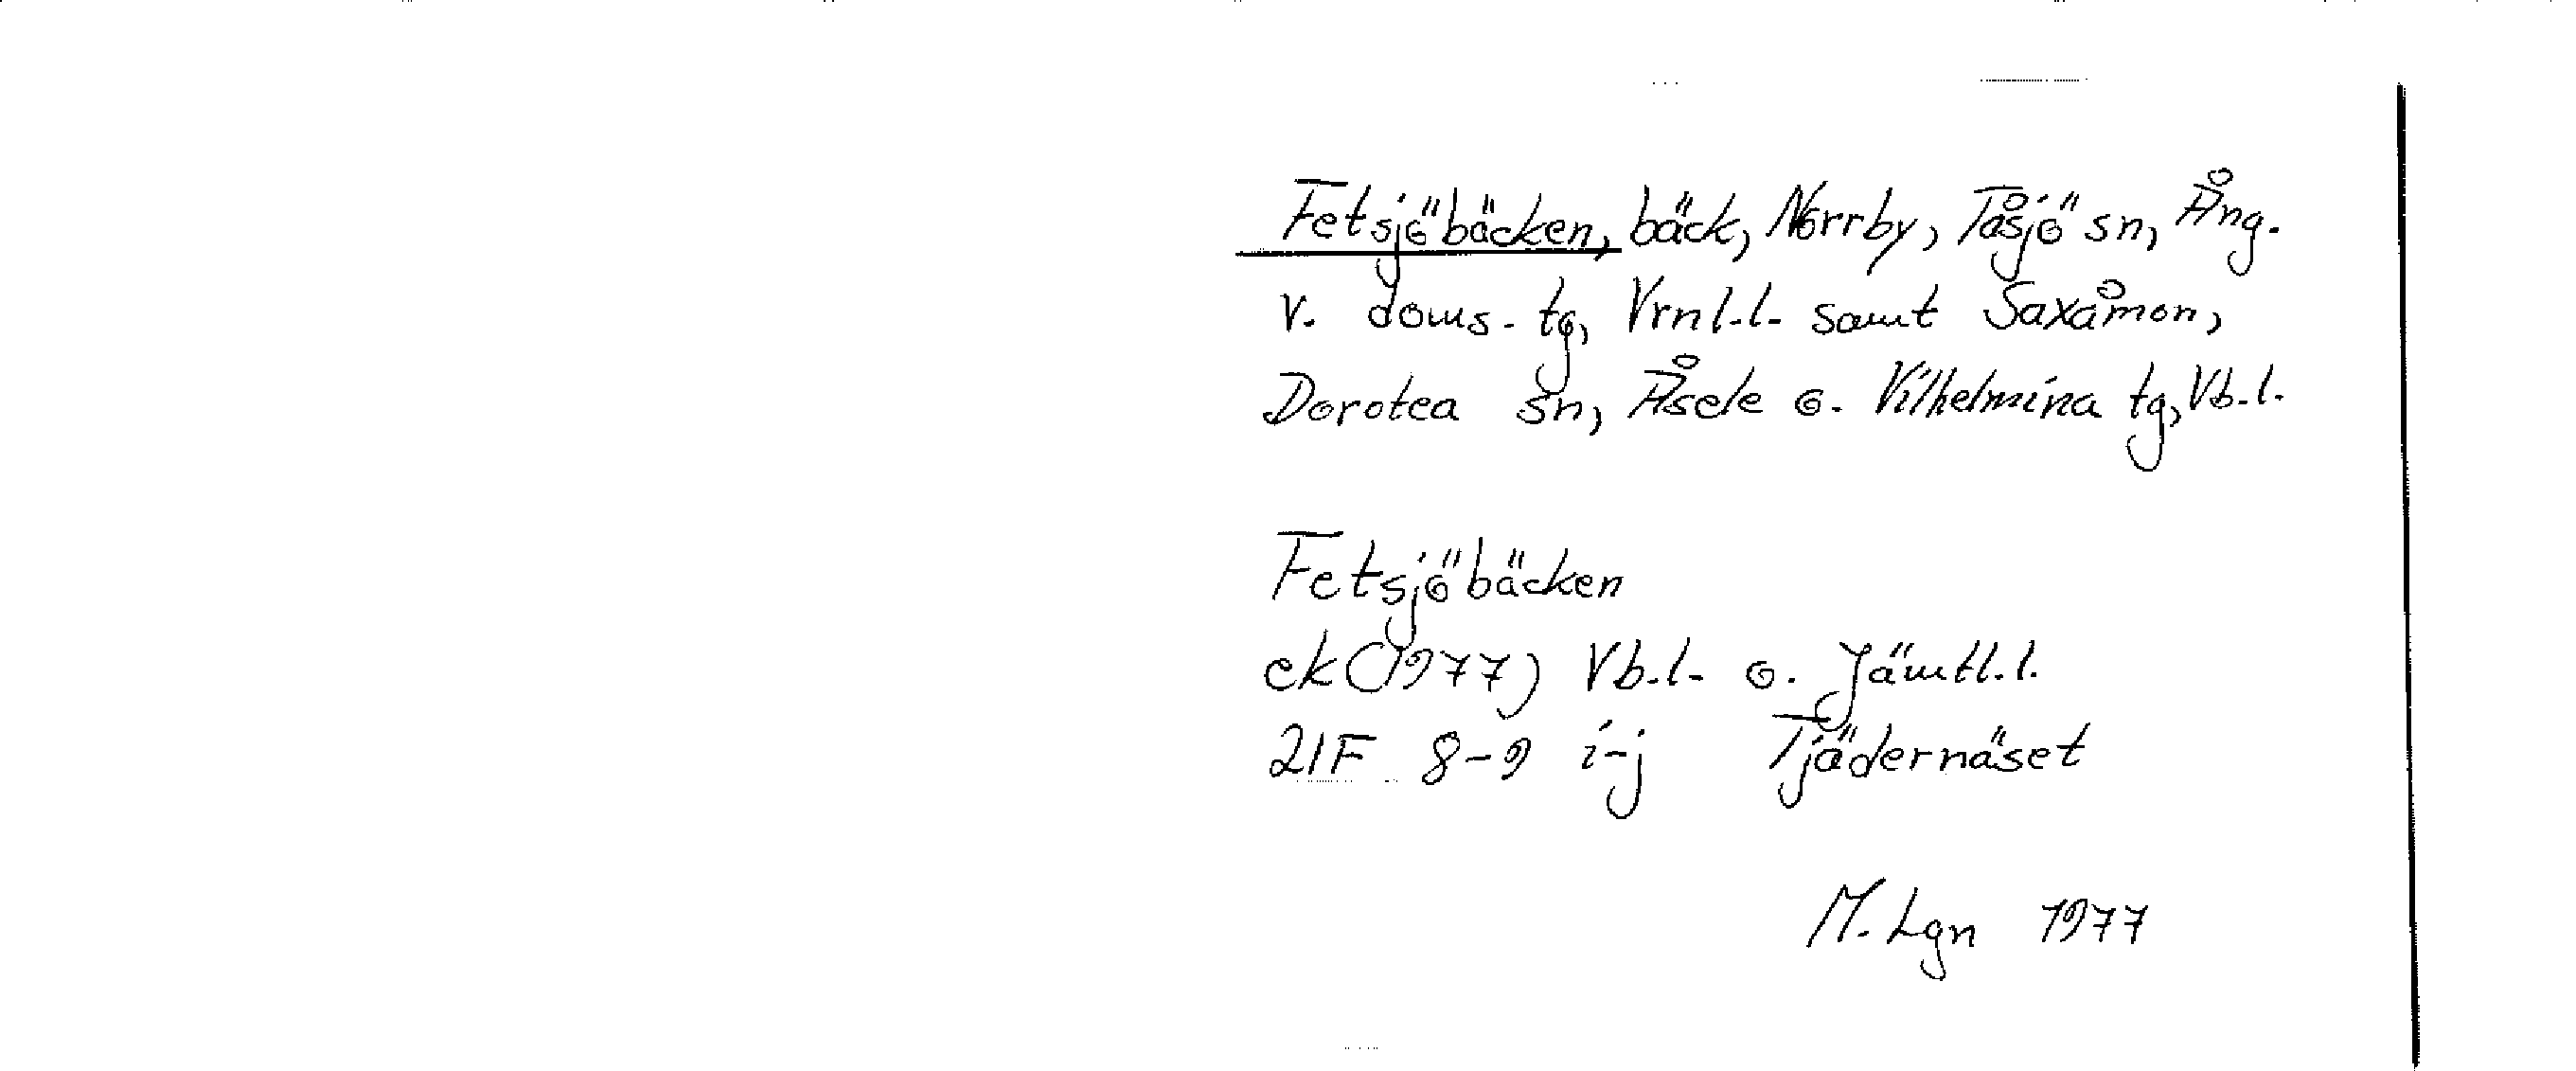 Fetsjöbäcken, bäck, Norrby, Tåsjö sn, Ång.
v. doms. tg, Vrnl.l. samt Saxåmon,
Dorotea sn, Åsele o. Vilhelmina tg, Vb.l.
Fetsjöbäcken
ek (1977) Vb.l. o. Jämtl.l.
21F 8-9 i-j Tjädernäset
M. Lgn 1977